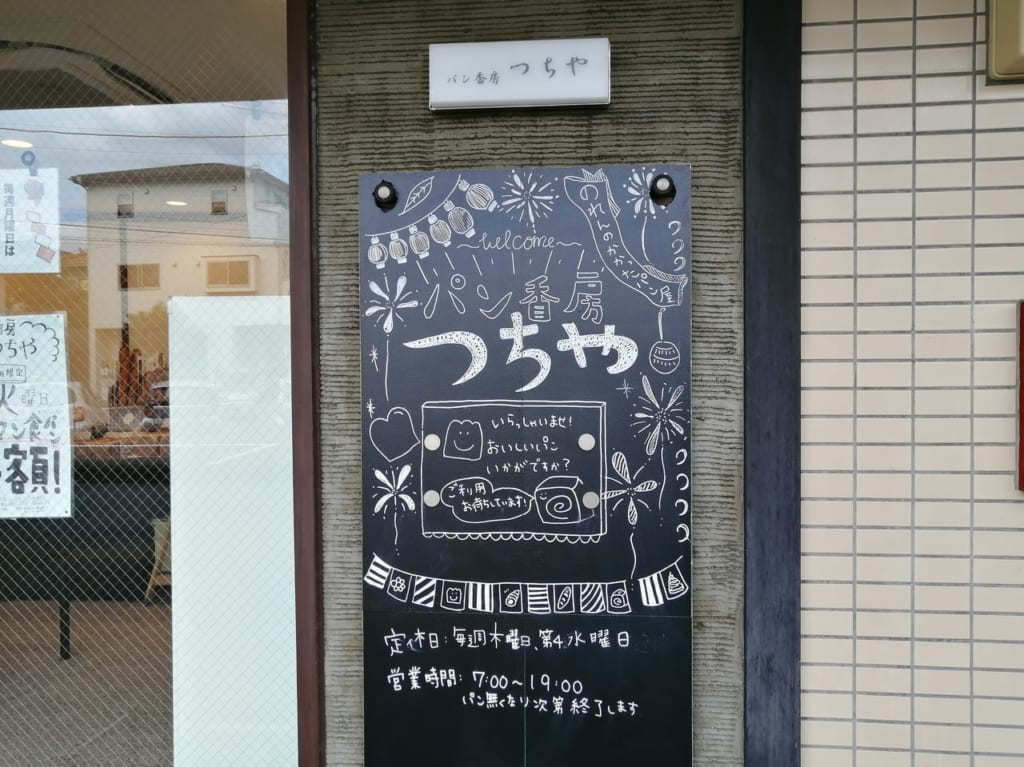 パン香房 つちや
welcome
のれんのかかったパン屋
パン香房
つちや
いらっしゃいませ!
おいしいパン
いかがですか?
ご利用
お待ちしています!
定休日:毎週木曜日、第4水曜日
営業時間:7:00〜19:00
パン無くなり次第終了します
毎週月曜日は
つちや
限定
火曜日
食パン
額!